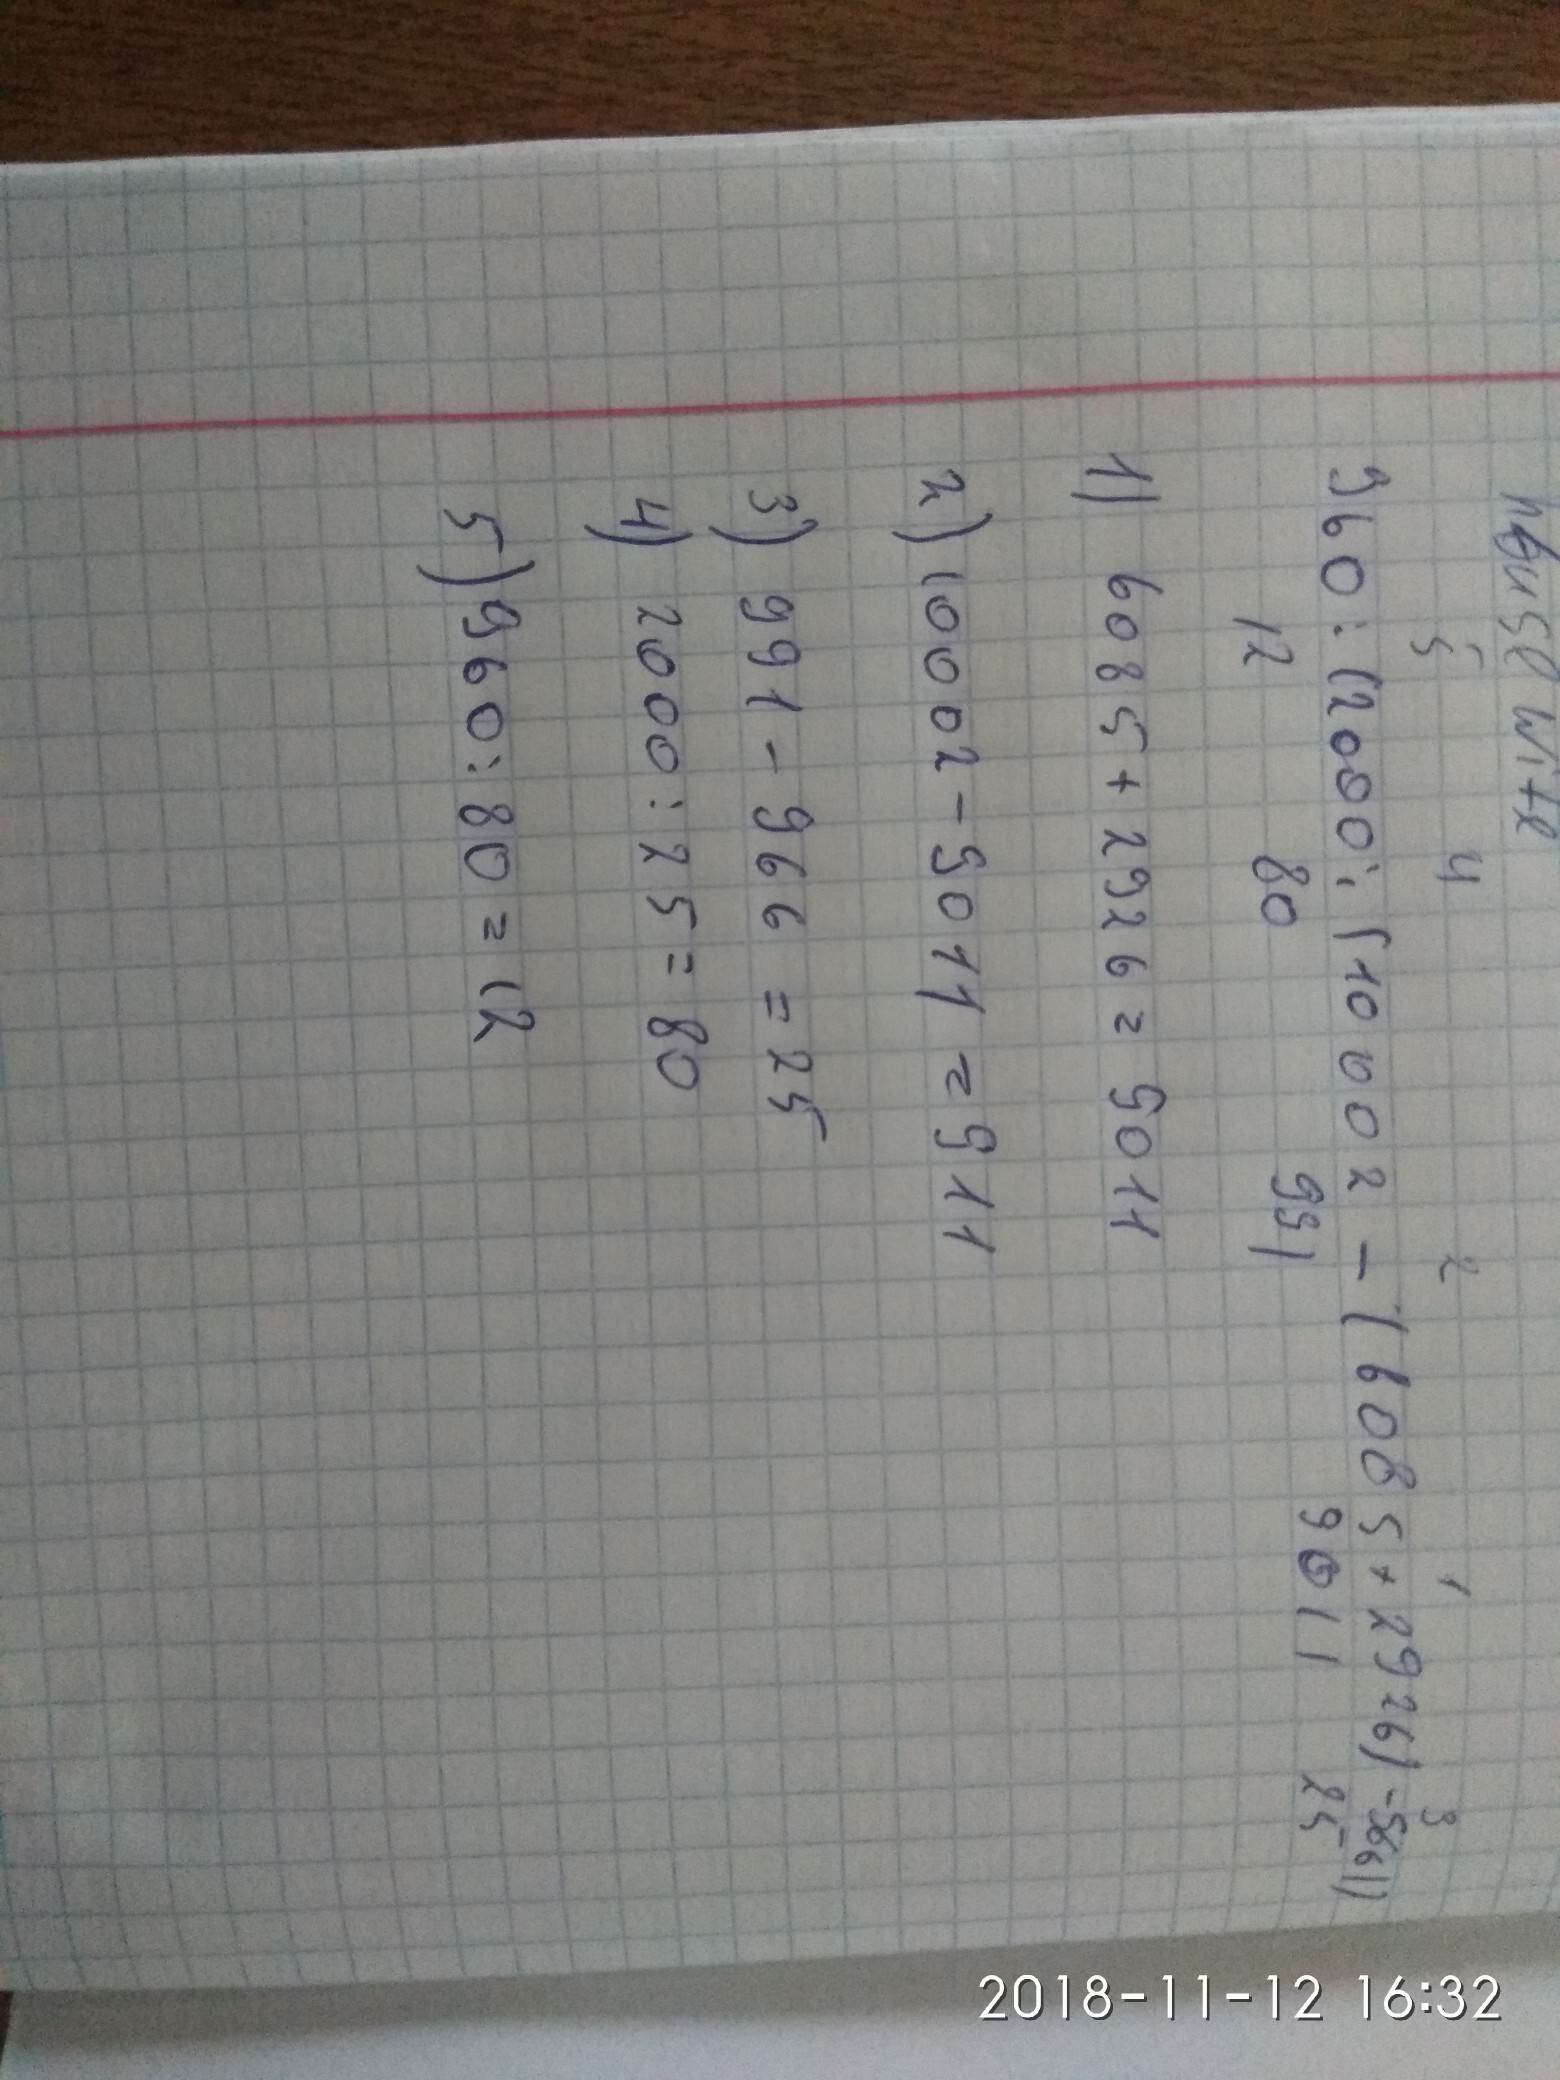 5 4 2 1 3
960:(2000:(10002-(6085+2926)-966))
12 80 991 9011 25
1) 6085+2926=9011
2) 10002-9011=911
3) 991-966=25
4) 2000:25=80
5) 960:80=12
2018-11-12 16:32